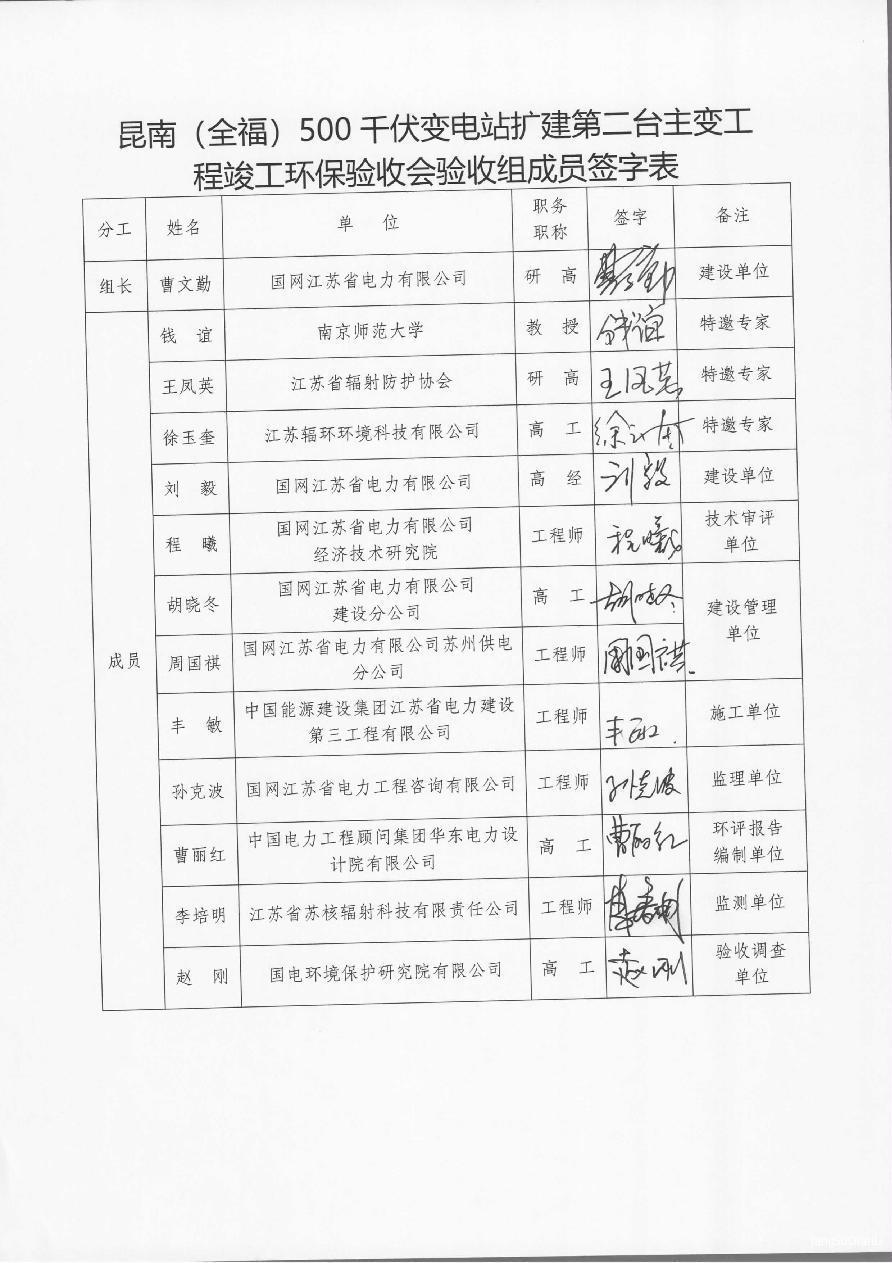 昆南（全福）500 千伏变电站扩建第二台主变工
程竣工环保验收会验收组成员签字表
分工 姓名 单 位 职务职称 签字 备注
组长 曹文勤 国网江苏省电力有限公司 研 高 曹文勤 建设单位
成员
钱 谊 南京师范大学 教 授 钱谊 特邀专家
王凤英 江苏省辐射防护协会 研 高 王凤英 特邀专家
徐玉奎 江苏辐环环境科技有限公司 高 工 特邀专家
刘 毅 国网江苏省电力有限公司 高 经 刘毅 建设单位
程 曦 国网江苏省电力有限公司
经济技术研究院 工程师 程曦 技术审评
单位
胡晓冬 国网江苏省电力有限公司
建设分公司 高 工 胡晓冬 建设管理
单位
周国祺 国网江苏省电力有限公司苏州供电
分公司 工程师 周国祺
丰 敏 中国能源建设集团江苏省电力建设
第三工程有限公司 工程师 丰敏 施工单位
孙克波 国网江苏省电力工程咨询有限公司 工程师 孙克波 监理单位
曹丽红 中国电力工程顾问集团华东电力设
计院有限公司 高 工 曹丽红 环评报告
编制单位
李培明 江苏省苏核辐射科技有限责任公司 工程师 监测单位
赵 刚 国电环境保护研究院有限公司 高 工 赵刚 验收调查
单位